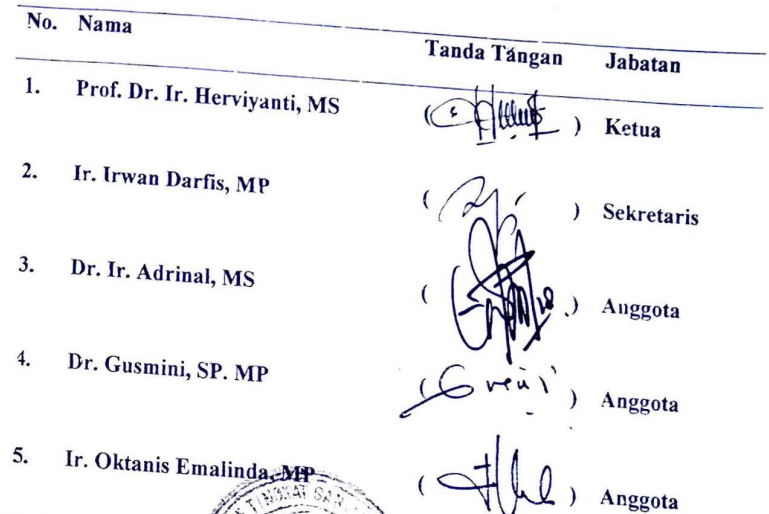 No. Nama Tanda Tangan Jabatan
1. Prof. Dr. Ir. Herviyanti, MS ( ) Ketua
2. Ir. Irwan Darfis, MP ( ) Sekretaris
3. Dr. Ir. Adrinal, MS ( ) Anggota
4. Dr. Gusmini, SP. MP ( ) Anggota
5. Ir. Oktanis Emalinda, MP ( ) Anggota
TINGKAT